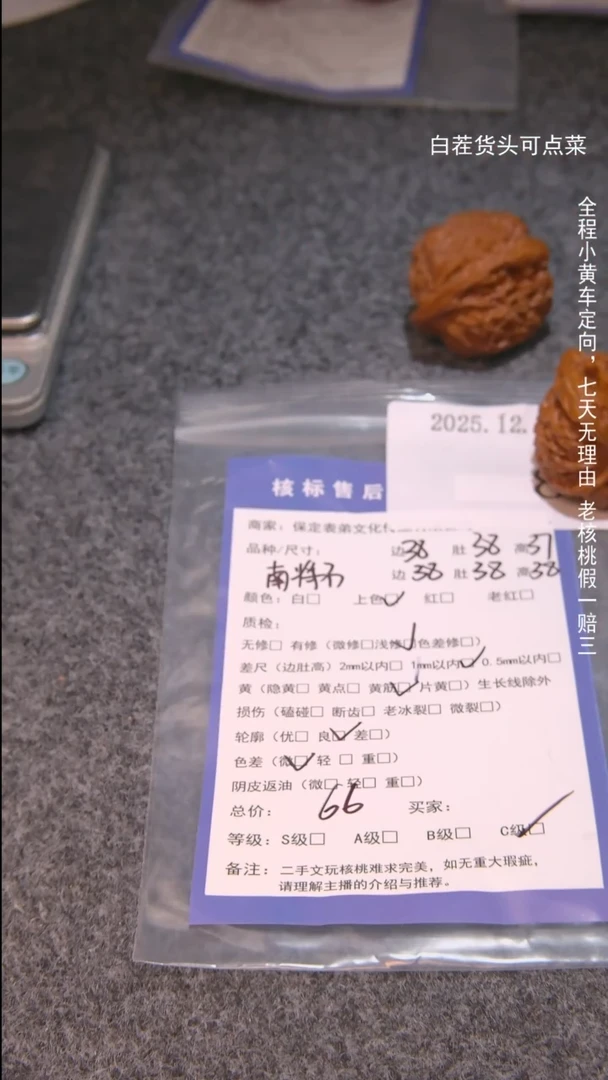 白茬货头可点菜
全程小黄车定向，七天无理由 老核桃假一赔三
2025.12.
核标售后
商家：保定表弟文化传
品种/尺寸： 边38 肚38 高37
南将石 边38 肚38 高38
颜色：白□ 上色□✓ 红□ 老红□
质检：
无修□ 有修（微修□浅修□✓色差修□）
差尺（边肚高）2mm以内□ 1mm以内□✓ 0.5mm以内□
黄（隐黄□ 黄点□ 黄筋□✓ 片黄□）生长线除外
损伤（磕碰□ 断齿□ 老冰裂□ 微裂□）
轮廓（优□ 良□✓ 差□）
色差（微□✓ 轻 □ 重□）
阴皮返油（微□ 轻□ 重□）
总价： 66 买家：
等级：S级□ A级□ B级□ C级□✓
备注：二手文玩核桃难求完美，如无重大瑕疵，
请理解主播的介绍与推荐。